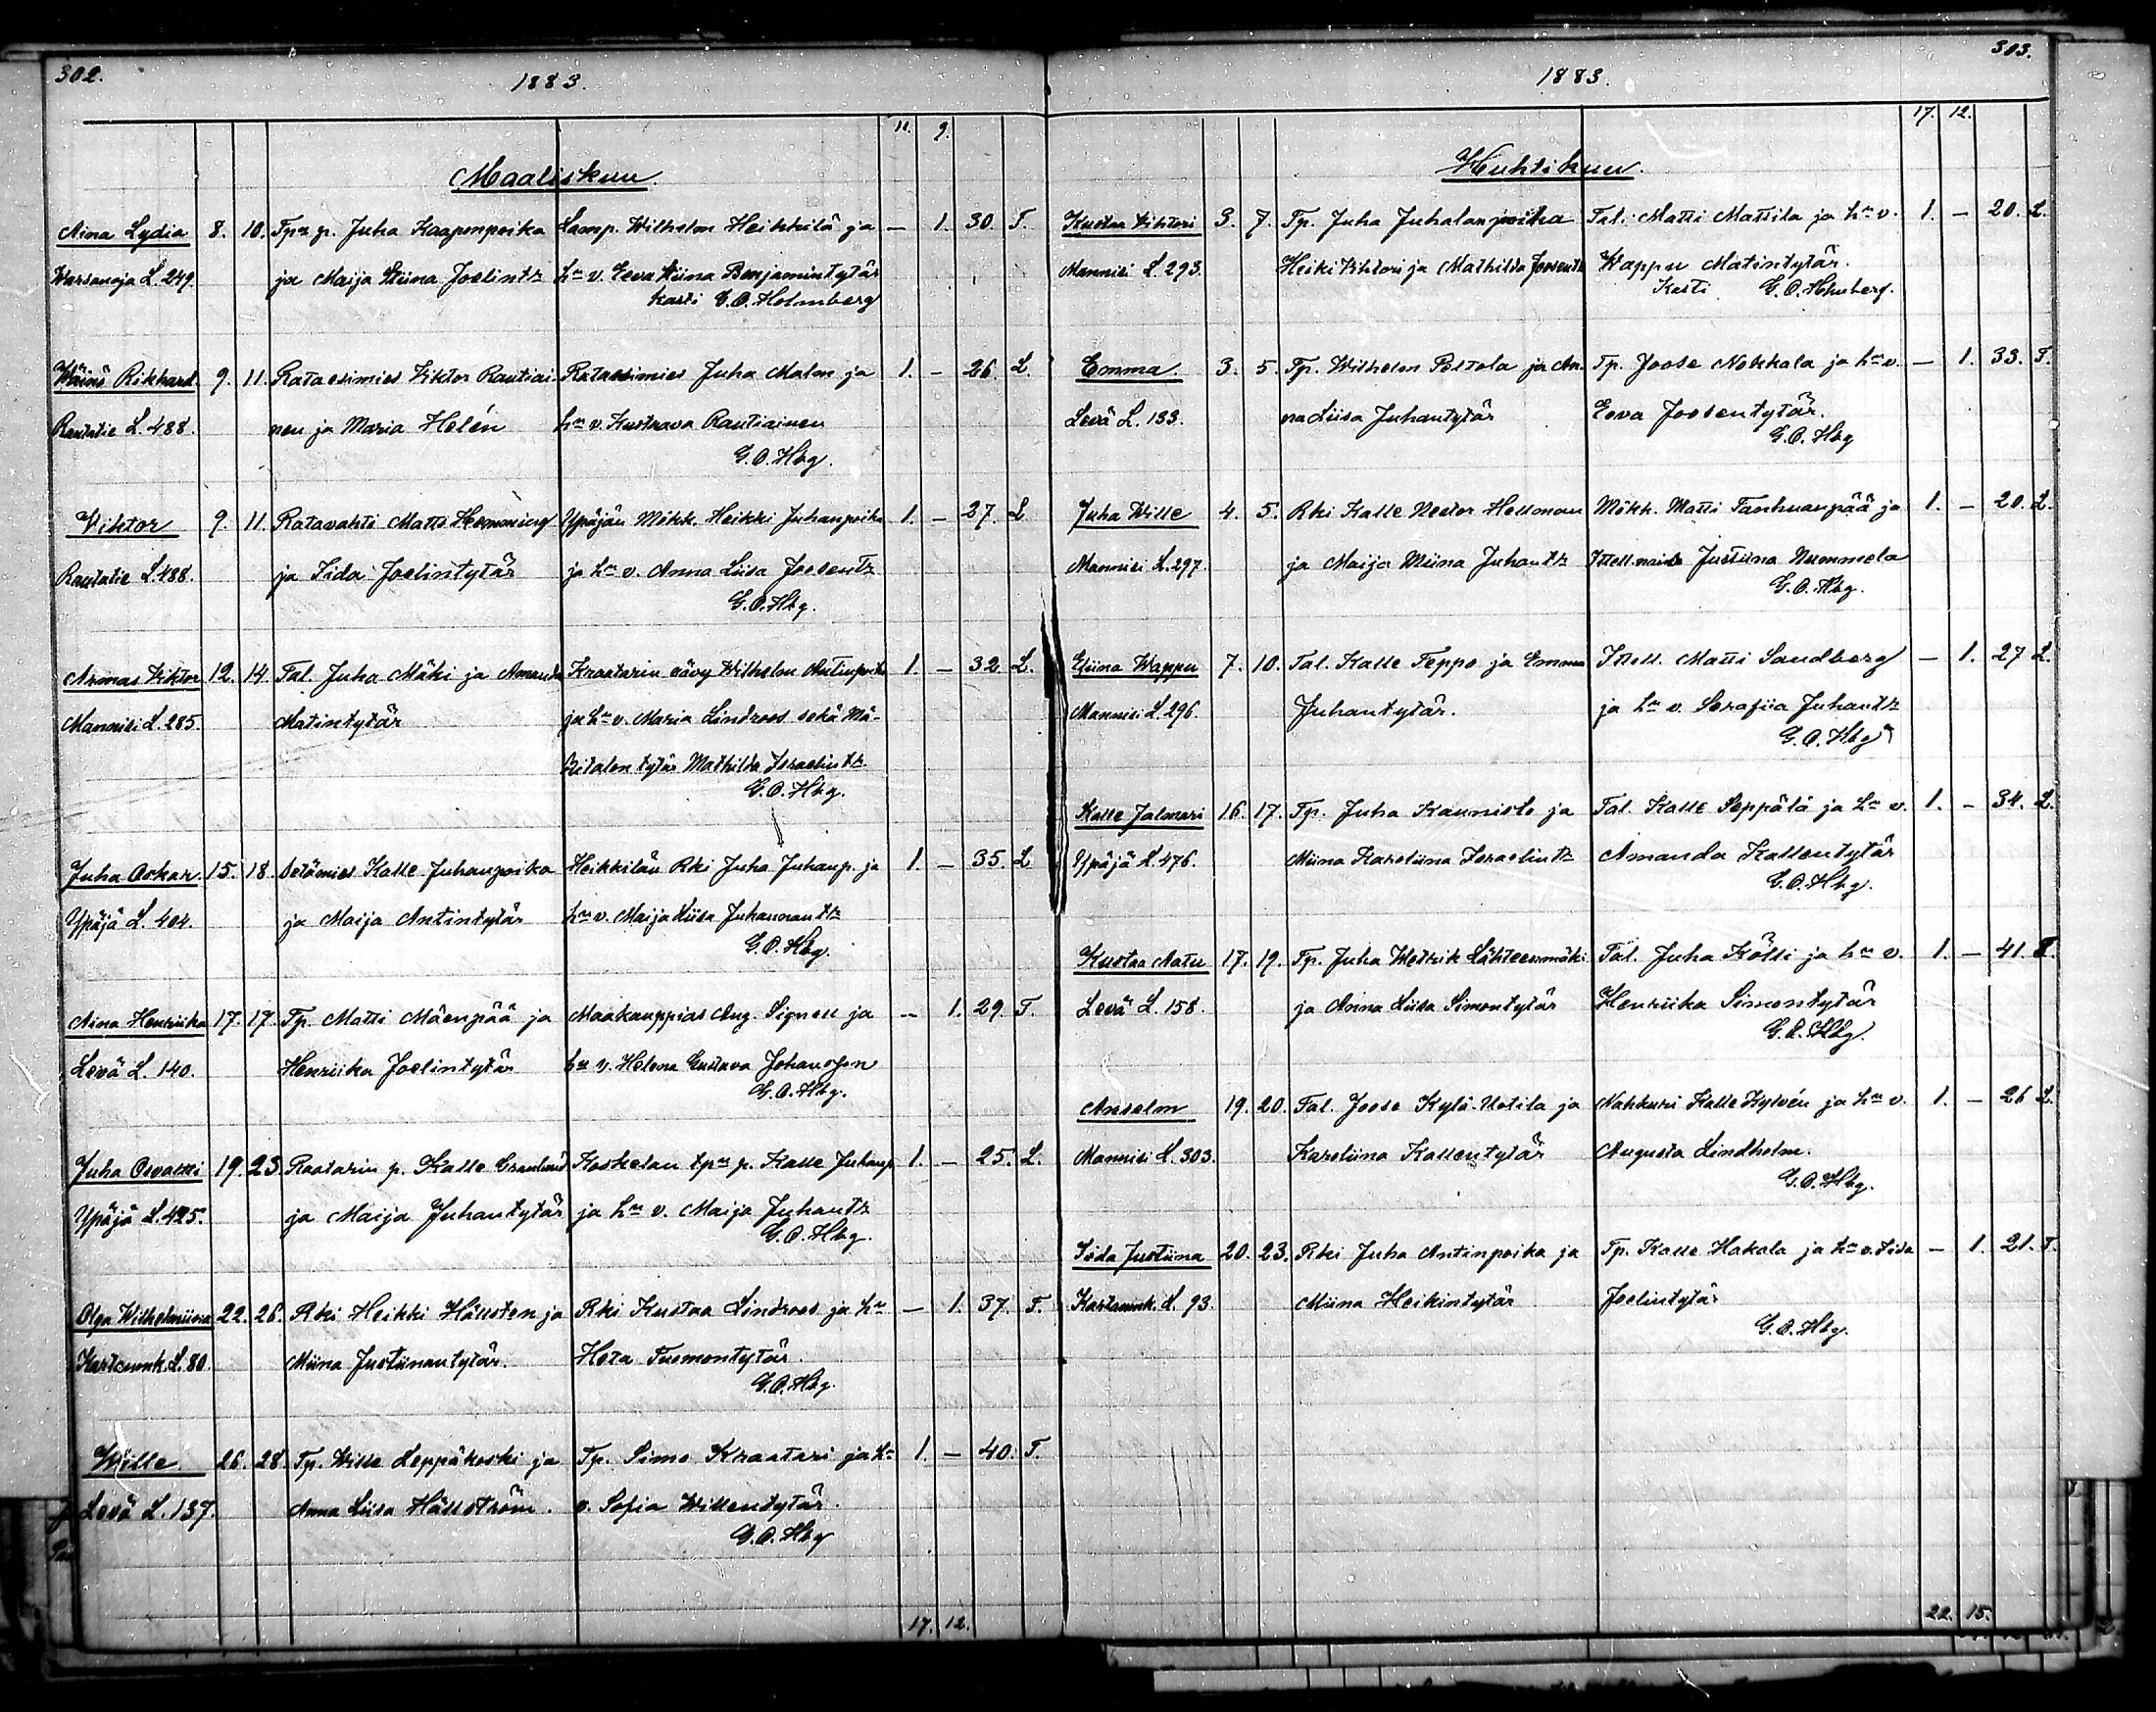 302.
1883.
11. 9.
Maaliskuu.
Aina Lydia 8. 10. Tpr p. Juha Kaapenpoika Lamp. Wilhelm Heikkilä ja — 1. 30. T.
Warsanoja L. 249. ja Maija Stiina Joelintr hra v. Eeva Stiina Benjamintytär
kasti G.O. Holmberg
Wäinö Rikhard 9. 11. Rataesimies Viktor Rautiai Rataesimies Juha Malm ja 1. — 26. L.
Rautatie L. 488. nen ja Maria Helén hra v. Kustaava Rautiainen
G.O. Hbg.
Viktor 9. 11. Ratavahti Matti Hemming Ypäjän Mökk. Heikki Juhanpoika 1. — 27. L.
Rautatie L. 488. ja Iida Joelintytär ja hra v. Anna Liisa Joosentr
G.O. Hbg.
Armas Viktor 12. 14. Tal. Juha Mäki ja Amanda Kraatarin sävy Wilhelm Antinpoika 1. — 32. L.
Mannisi L. 285. Matintytär ja hra v. Maria Lindroos sekä Mä-
kitalon tytär Mathilda Israelintr
G.O. Hbg.
Juha Oskar 15. 18. Setämies Kalle Juhanpoika Heikkilän Rki Juha Juhanp. ja 1. — 35. L
Ypäjä L. 404. ja Maija Antintytär hra v. Maija Liisa Juhannantr
G.O. Hbg.
Aina Henriika 17. 17. Tp. Matti Mäenpää ja Maakauppias Aug. Signell ja — 1. 29. T.
Levä L. 140. Henriika Joelintytär hra v. Helena Gustava Johansson
G.O. Hbg.
Juha Osvaltti 19. 23. Raatarin p. Kalle Granlund Kosketan tpr p. Kalle Juhanp 1. — 25. L.
Ypäjä L. 425. ja Maija Juhantytär ja hra v. Maija Juhantr
G.O. Hbg.
Olga Wilhelmiina 22. 26. Rki Heikki Hällsten ja Rki Kustaa Lindroos ja hra — 1. 37. T.
Kartanonk. L. 80. Miina Justiinantytär. Heta Tuomontytär.
G.O. Hbg.
Wille 26. 28. Tp. Wille Leppäkoski ja Tp. Simo Kraatari ja hra 1. — 40. T.
Levä L. 137. Anna Liisa Hällström. v. Sofia Willentytär.
G.O. Hbg
17. 12.
303.
1883.
17. 12.
Huhtikuu.
Kustaa Vihtori 3. 7. Tp. Juha Juhalanpoika Tal. Matti Mattila ja hra v. 1. — 20. L.
Mannisi L. 293. Heiki Vihtori ja Mathilda Joosentr Wappu Matintytär.
Kasti G.O. Holmberg.
Emma. 3. 5. Tp. Wilhelm Peltola ja An- Tp. Joose Nokkala ja hra v. — 1. 33. T.
Levä L. 133. na Liisa Juhantytär Eeva Joosentytär.
G.O. Hbg
Juha Wille 4. 5. Rki Kalle Nestor Hellman Mökk. Matti Tanhuanpää ja 1. — 20. L.
Mannisi L. 297. ja Maija Miina Juhantr Itsell. naine Justiina Nummela
G.O. Hbg.
Eliina Wappu 7. 10. Tal. Kalle Teppo ja Emma Itsell. Matti Sandberg — 1. 27 L.
Mannisi L. 296. Juhantytär. ja hra v. Serafiia Juhantr
G.O. Hbg
Kalle Jalmari 16. 17. Tp. Juha Kaunisto ja Tal. Kalle Seppälä ja hra v. 1. — 34. L.
Ypäjä L. 476. Miina Karoliina Israelintr Amanda Kallentytär
G.O. Hbg.
Kustaa Aatu 17. 19. Tp. Juha Wettrik Lähteenmäki Tal. Juha Kölli ja hra v. 1. — 41. T.
Levä L. 158. ja Anna Liisa Simontytär Henriika Simontytär
G.O. Hbg.
Anselm 19. 20. Tal. Joose Kylä-Uotila ja Nahkuri Kalle Kylvén ja hra v. 1. — 26 L.
Mannisi L. 303. Karoliina Kallentytär Augusta Lindholm.
G.O. Hbg.
Iida Justiina 20. 23. Rki Juha Antinpoika ja Tp. Kalle Hakala ja hra v. Iida — 1. 21. T.
Kartanonk. L. 93. Miina Heikintytär Joelintytär
G.O. Hbg.
22. 15.